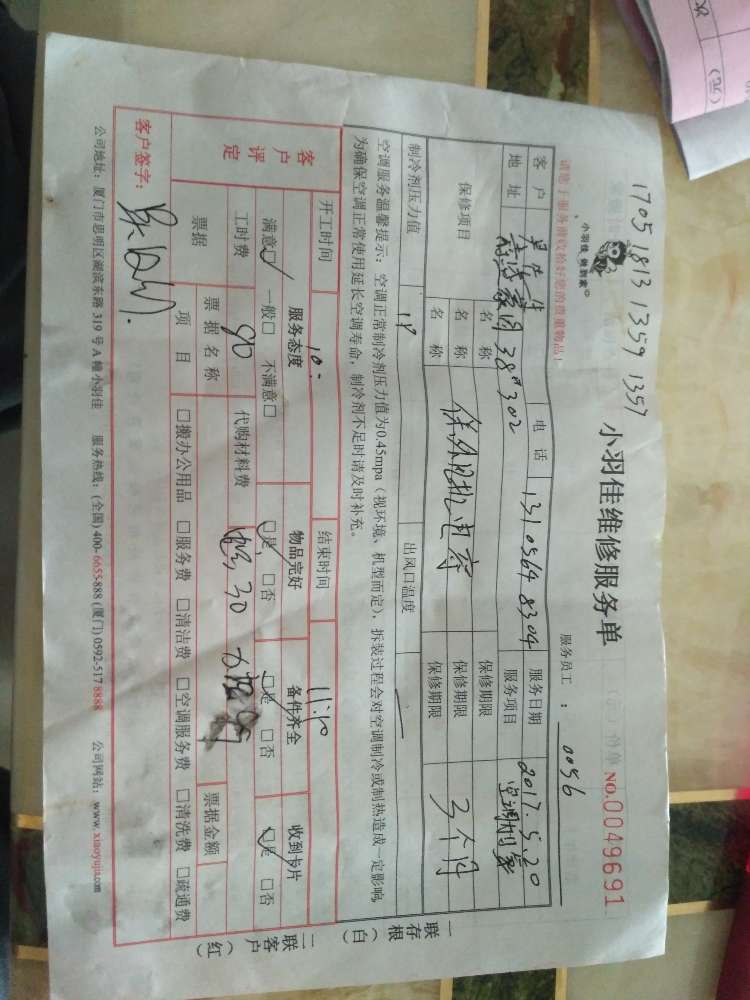 1705 1813 1359 1357
小羽佳 做到家
小羽佳维修服务单
NO.0049691
服务员工：0056
请您于服务前收拾好您的贵重物品！
客户 电话 13105648304 服务日期 2017.5.20
地址 302 服务项目 空调
保修项目 名称 保修期限
名称 保外风机电容 保修期限 3个月
名称 保修期限
制冷剂压力值 出风口温度
空调服务温馨提示：空调正常制冷剂压力值为0.45mpa（视环境、机型而定），拆装过程会对空调制冷或制热造成一定影响，
为确保空调正常使用延长空调寿命，制冷剂不足时请及时补充。
客户评定 开工时间 10:- 结束时间 11:10
服务态度 物品完好 备件齐全 收到卡片
满意□ 一般□ 不满意□ □是 □否 □是 □否 □是 □否
工时费 90 代购材料费 30
票据 票据名称 票据金额
项目 □搬办公用品 □服务费 □清洁费 □空调服务费 □清洗费 □疏通费
客户签字：
公司地址：厦门市思明区湖滨东路319号A幢小羽佳 服务热线：(全国) 400-6655-888 (厦门) 0592-517 8888 公司网站：www.xiaoyujia.com
一联存根（白）
二联客户（红）